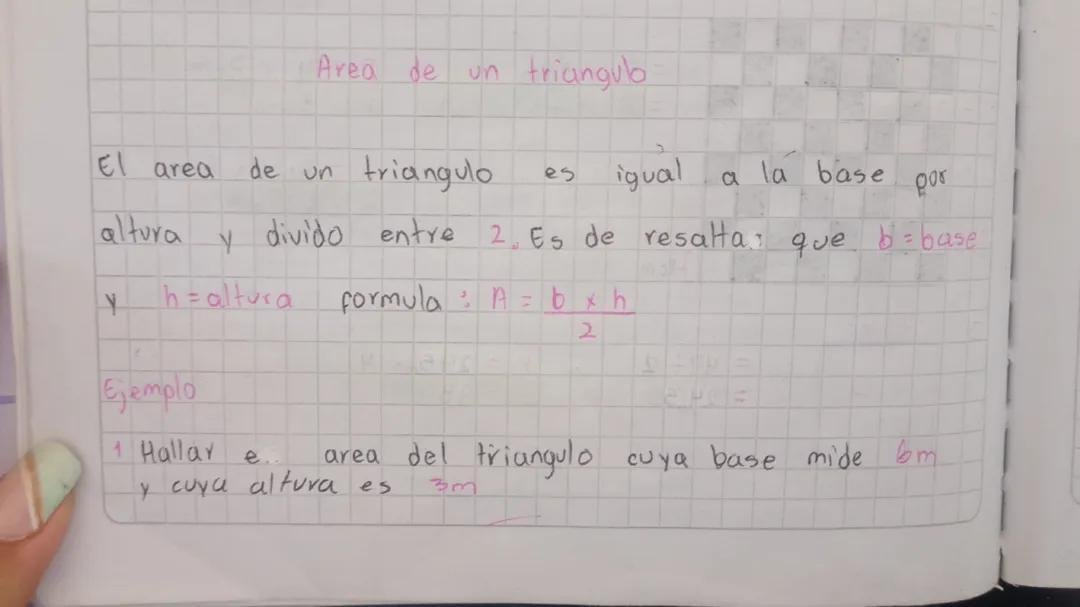 Area de un triangulo
El area de un triangulo es igual a la base por
altura y divido entre 2. Es de resalta: que b = base
y h = altura formula : A = b x h
2
Ejemplo
1 Hallar e.. area del triangulo cuya base mide 6m
y cuya altura es 3m